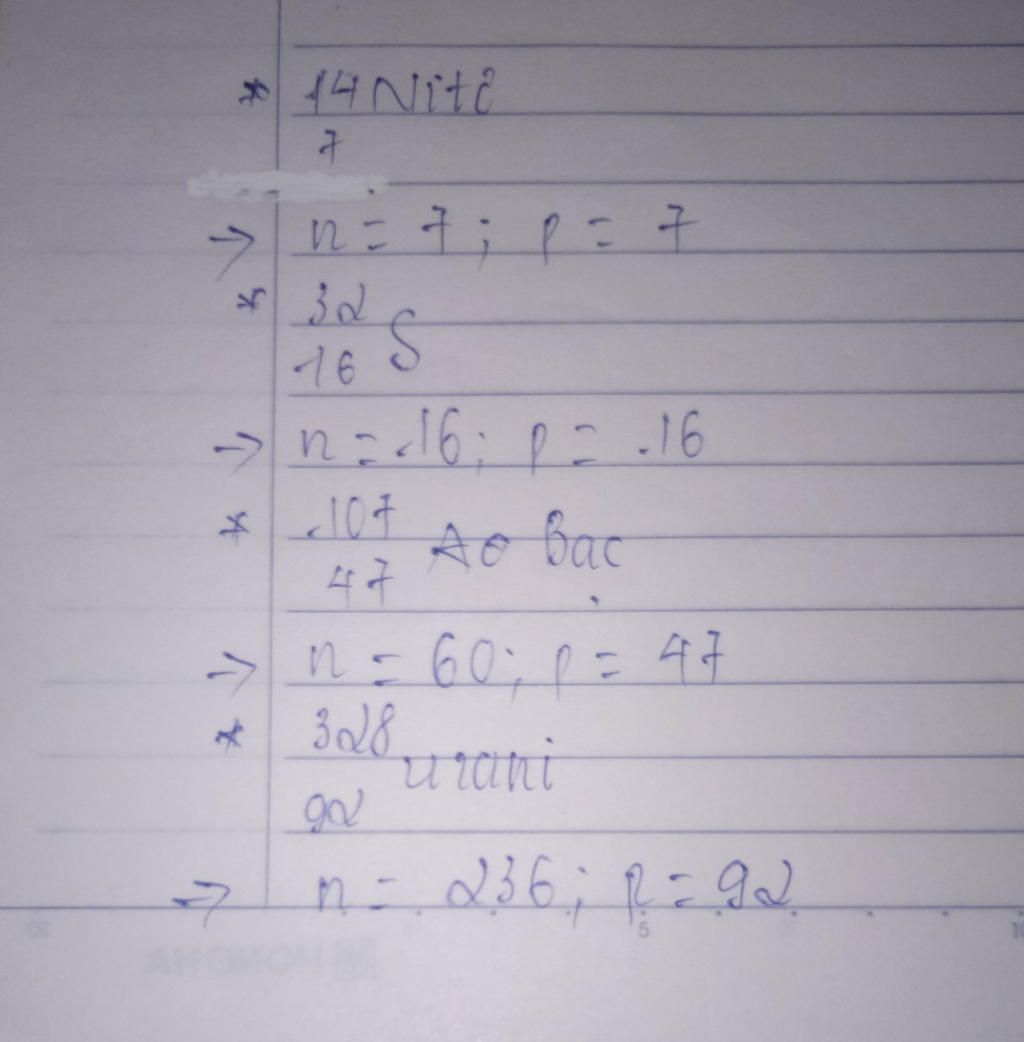 * 14 Nitơ
7
→ n = 7; p = 7
* 32
16 S
→ n = 16; p = 16
* 107
47 Ag Bạc
→ n = 60; p = 47
* 328
92 urani
→ n = 236; p = 92
5
10